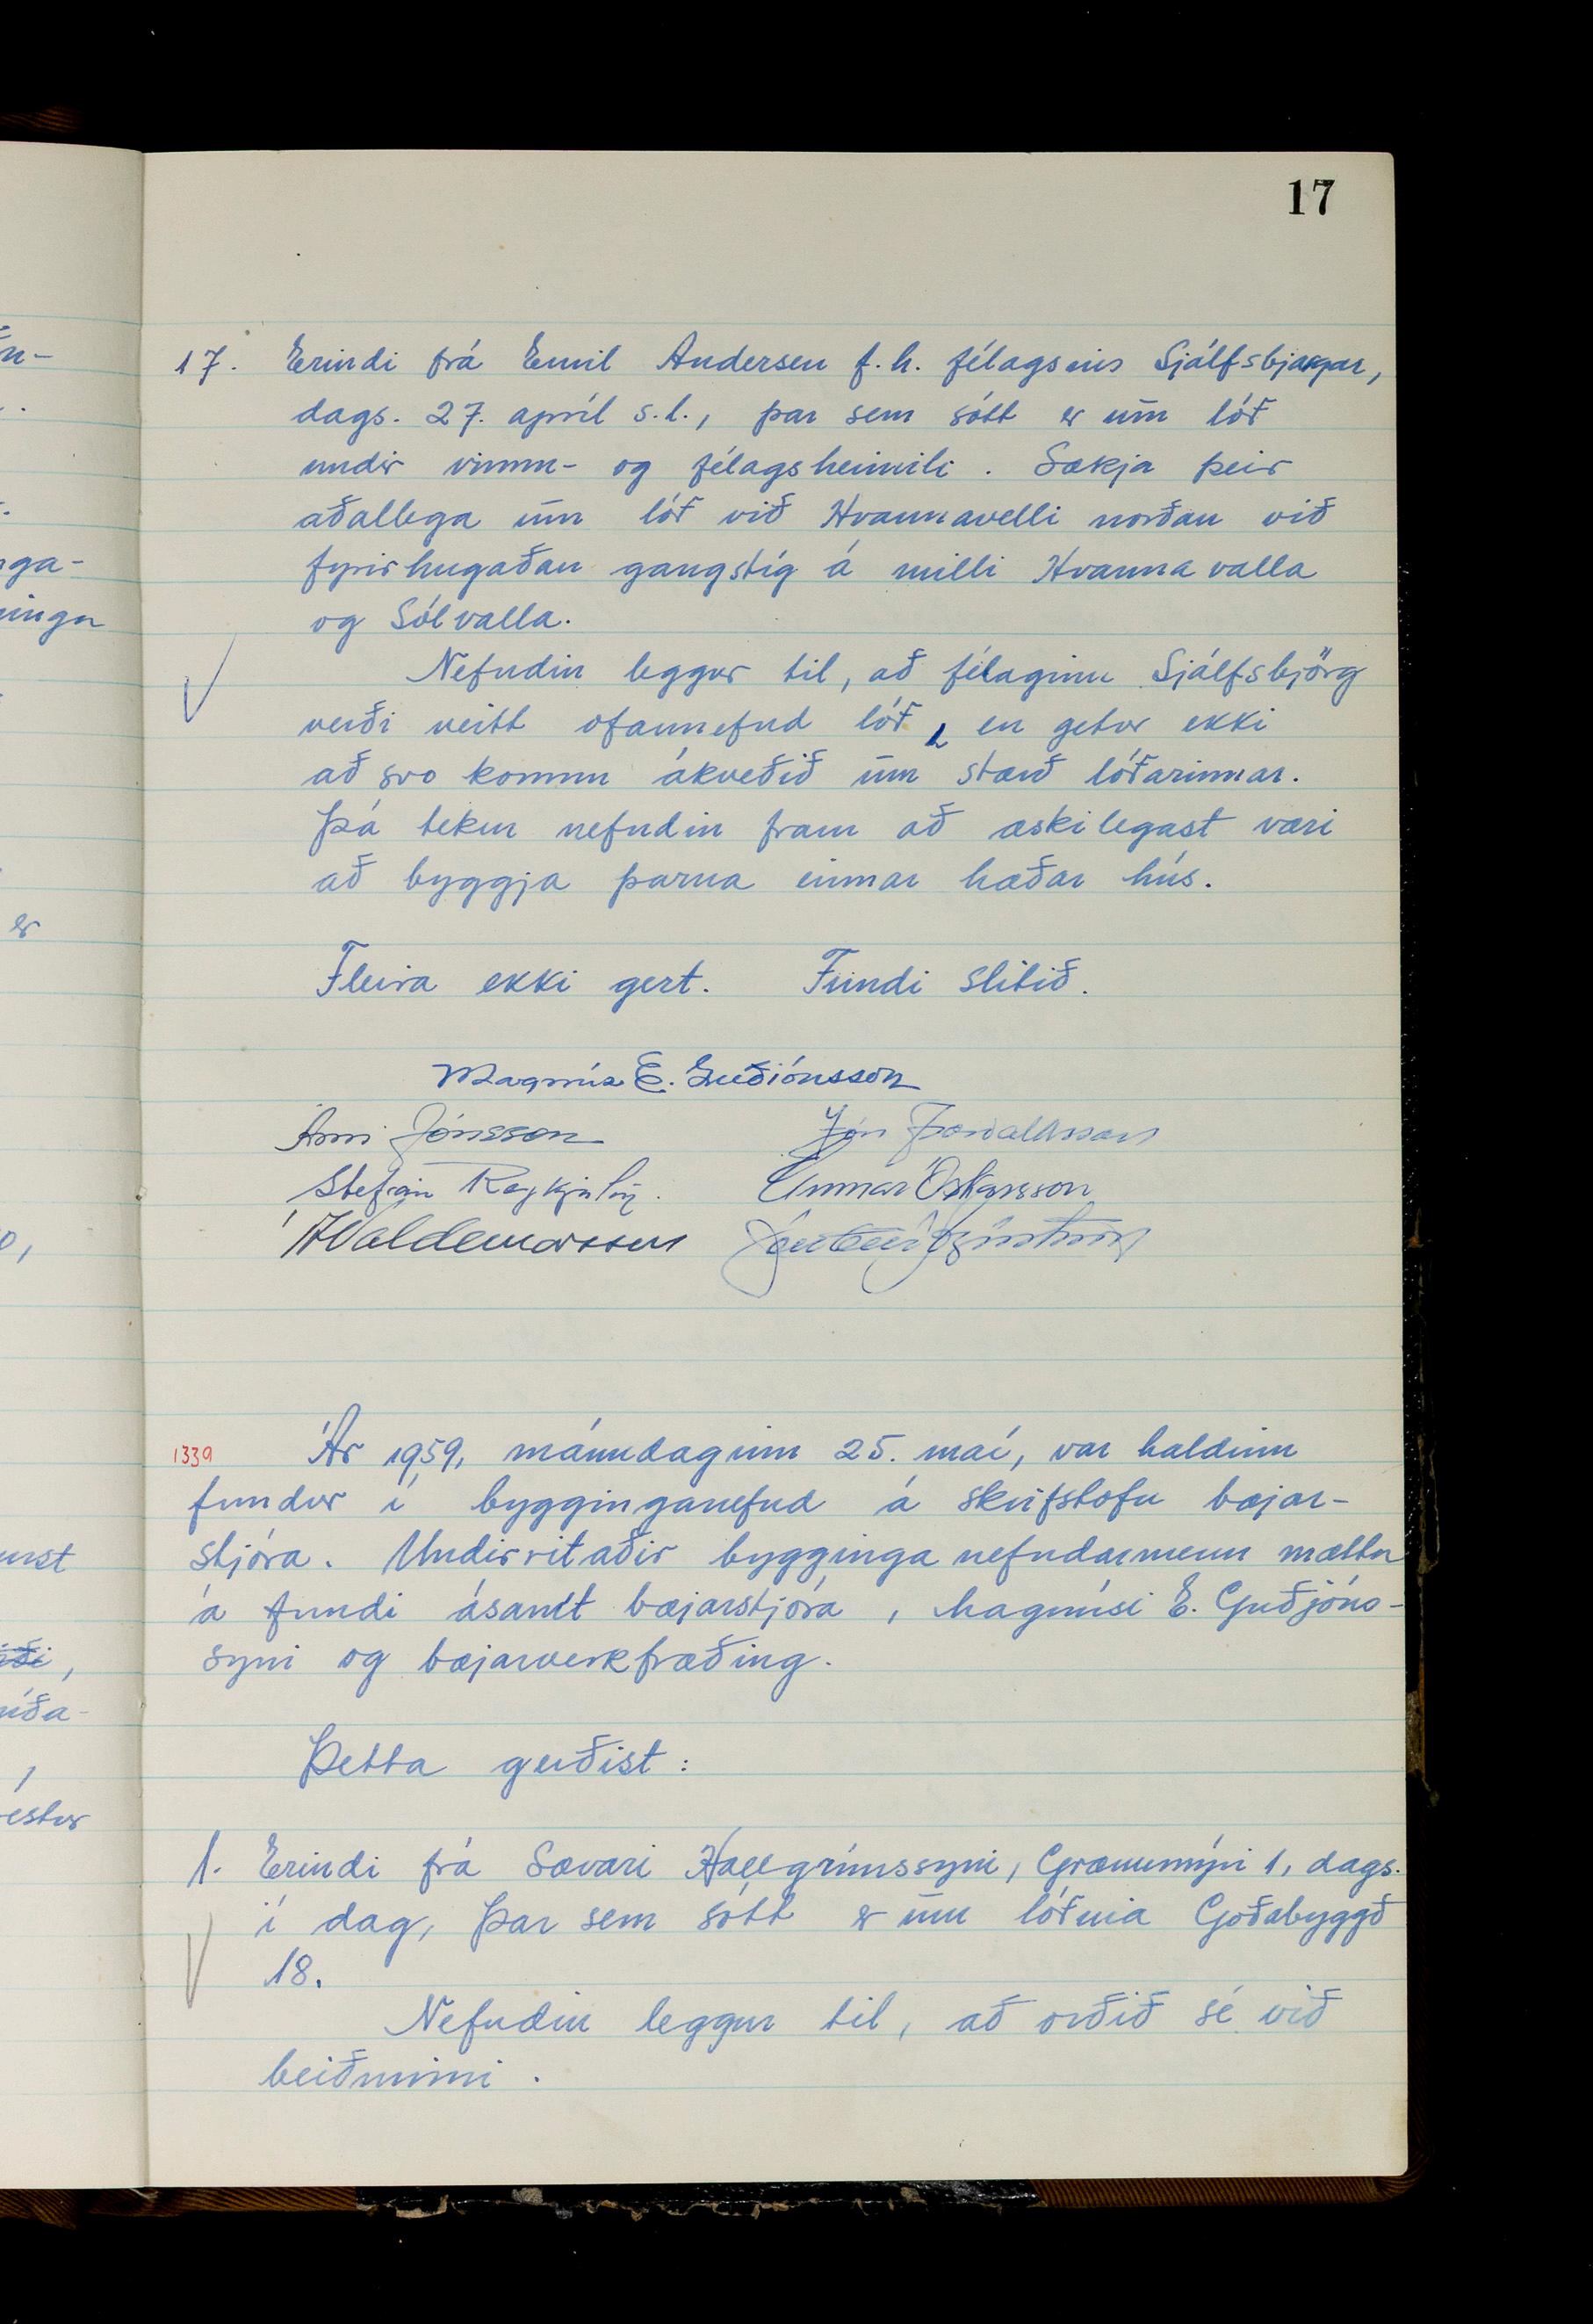 17
17. Erindi frá Emil Andersen f.h. félagsins Sjálfsbjargar,
dags. 27. apríl s.l., þar sem sótt er um lóð
undir vinnu- og félagsheimili. Sækja þeir
aðallega um lóð við Hvannavelli norðan við
fyrirhugaðan gangstíg á milli Hvannavalla
og Sólvalla.
Nefndin leggur til, að félaginu Sjálfsbjörg
verði veitt ofannefnd lóð, en getur ekki
að svo komnu ákveðið um stærð lóðarinnar.
Þá tekur nefndin fram að æskilegast væri
að byggja þarna einnar hæðar hús.
Fleira ekki gert. Fundi slitið.
Magnús E. Guðjónsson
Árni Jónsson Jón Þorvaldsson
Stefán Reykjalín. Gunnar Óskarsson
Á Valdemarsson
1339 Ár 1959, mánudaginn 25. maí, var haldinn
fundur í bygginganefnd á skrifstofu bæjar-
stjóra. Undirritaðir bygginganefndarmenn mættu
á fundi ásamt bæjarstjóra, Magnúsi E. Guðjóns-
syni og bæjarverkfræðing.
Þetta gerðist:
1. Erindi frá Sævari Hallgrímssyni, Grænumýri 1, dags.
í dag, Þar sem sótt er um lóðina Goðabyggð
18.
Nefndin leggur til, að orðið sé við
beiðninni.
nga-
er